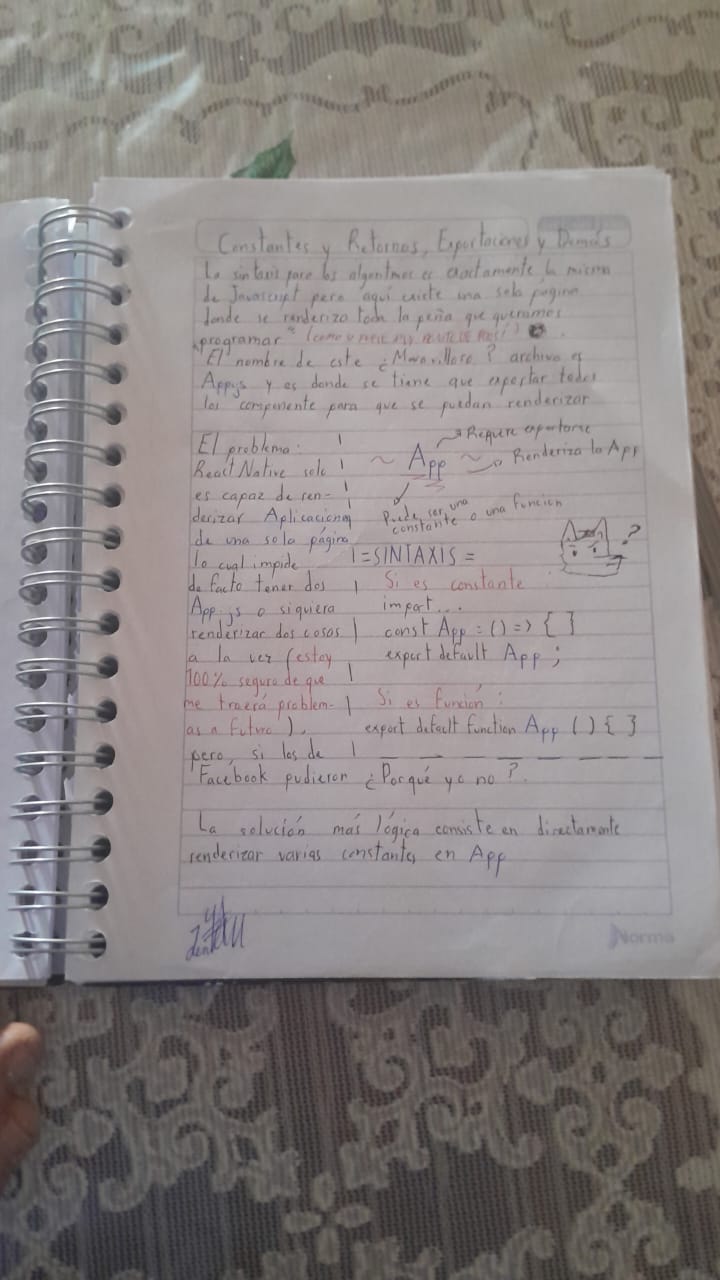 Constantes y Retornos, Exportaciones y Demás
La sintaxis para los algoritmos es exactamente la misma
de Javascript pero aquí existe una sola página
donde se renderiza toda la peña que queramos
programar
El nombre de este ¿Maravilloso? archivo es
App.js y es donde se tiene que exportar todos
los componente para que se puedan renderizar
El problema:
React Native solo
es capaz de ren-
derizar Aplicaciones
de una sola página
lo cual impide
de facto tener dos
App.js o siquiera
renderizar dos cosas
a la vez (estoy
100% seguro de que
me traerá problem-
as a futuro).
pero, si los de
Facebook pudieron ¿Porqué yo no?
Require exportarse
~ App ~ Renderiza la App
Puede ser una
constante o una función
?
=SINTAXIS=
Si es constante
import...
const App = () => { }
export default App;
Si es función:
export default function App () { }
La solución más lógica consiste en directamente
renderizar varias constantes en App
Norma